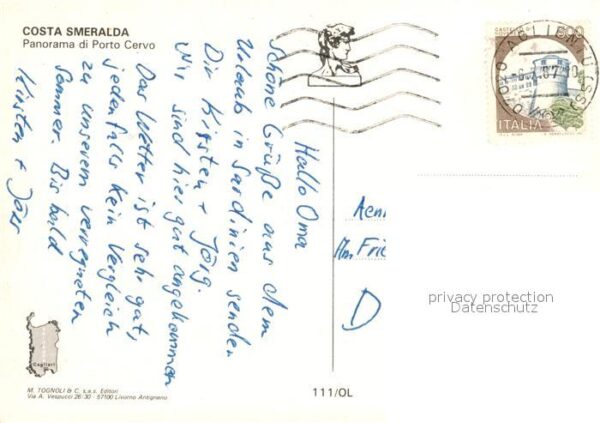 COSTA SMERALDA
Panorama di Porto Cervo
Hallo Oma
Schöne Grüße aus dem
Urlaub in Sardinien senden
Dir Kirsten + Jörg.
Wir sind hier gut angekommen
Das Wetter ist sehr gut,
jedenfalls kein Vergleich
zu unserem verregneten
Sommer. Bis bald
Kirsten + Jörg
ITALIA
Am Frie
D
privacy protection
Datenschutz
Cagliari
M. TOGNOLI & C. s.a.s. Editori
Via A. Vespucci 26-30 - 57100 Livorno Antignano
111/OL